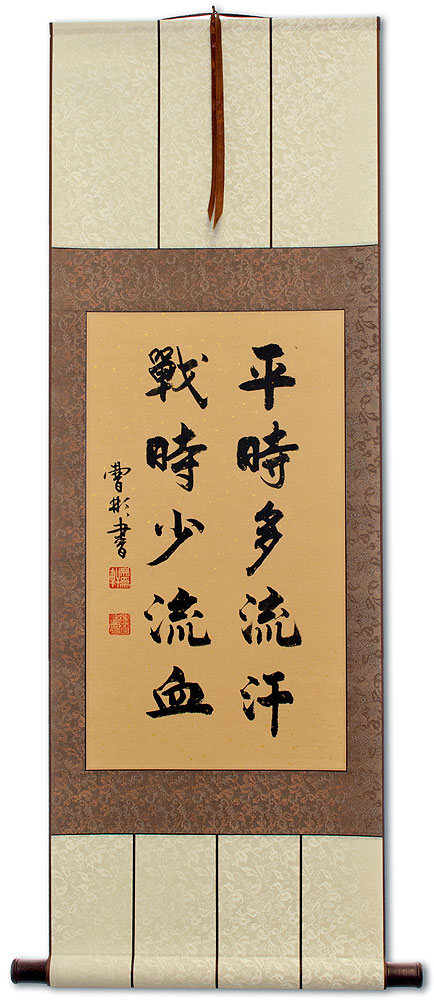 平時多流汗
戰時少流血
曹彬書